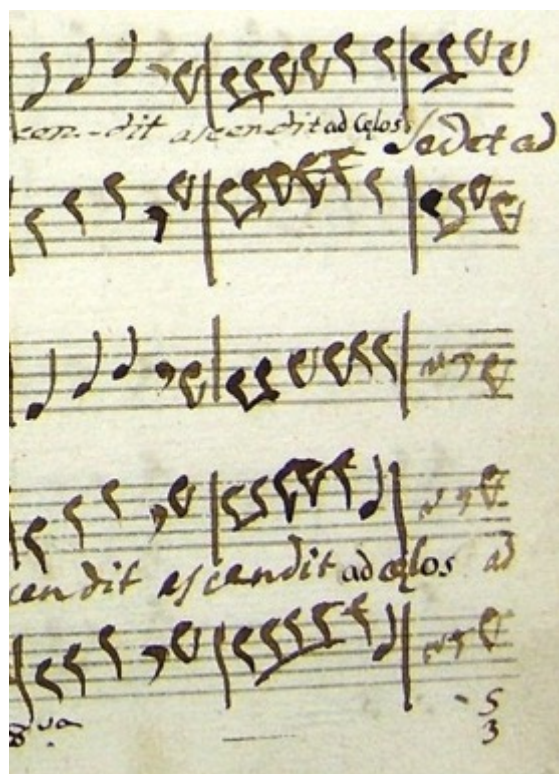 cen--dit ascendit ad Cęlos Sedet ad
cendit ascendit ad cęlos ad
8va
5
3